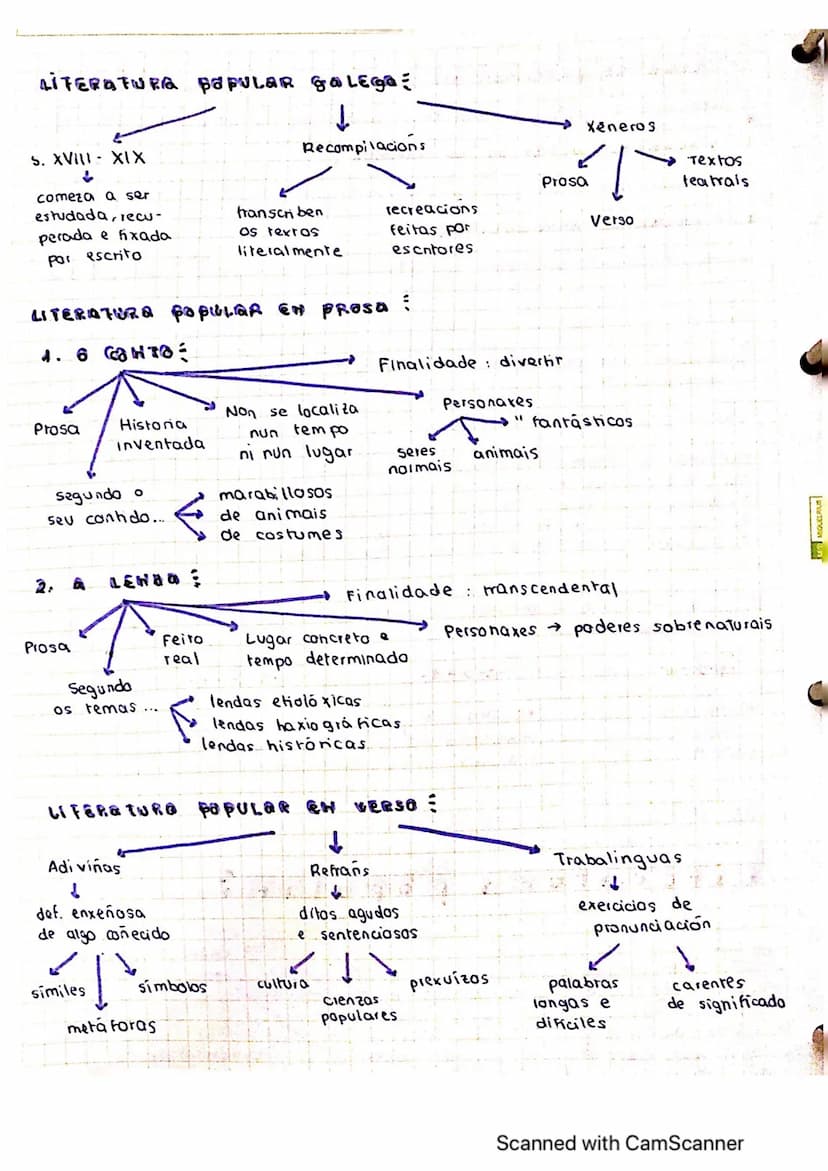 LITERATURA POPULAR GALEGA:
s. XVIII - XIX
comeza a ser
estudada, recu-
perada e fixada
por escrito
Recompilacións
transcriben
os textos
literalmente
recreacións
feitas por
escritores
Xéneros
Prosa
Verso
Textos
teatrais
LITERATURA POPULAR EN PROSA:
1. O CONTO:
Finalidade: divertir
Prosa
Historia
inventada
Non se localiza
nun tempo
ni nun lugar
Personaxes
seres
normais
animais
" fantásticos
Segundo o
seu contido...
marabillosos
de animais
de costumes
2. A LENDA:
Finalidade: transcendental
Prosa
Feito
real
Lugar concreto e
tempo determinado
Personaxes → poderes sobrenaturais
Segundo
os temas ...
lendas etiolóxicas
lendas haxiográficas
lendas históricas
LITERATURA POPULAR EN VERSO:
Adiviñas
def. enxeñosa
de algo coñecido
símiles
metáforas
símbolos
Refráns
ditos agudos
e sentenciosos
cultura
cienzas
populares
prexuízos
Trabalinguas
exercicios de
pronunciación
palabras
longas e
difíciles
carentes
de significado
Scanned with CamScanner